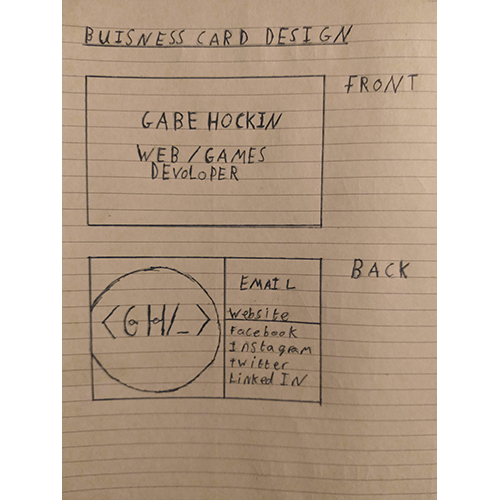 BUISNESS CARD DESIGN
FRONT
GABE HOCKIN
WEB / GAMES
DEVOLOPER
BACK
<GH/_>
EMAIL
Website
Facebook
Instagram
twitter
Linked IN